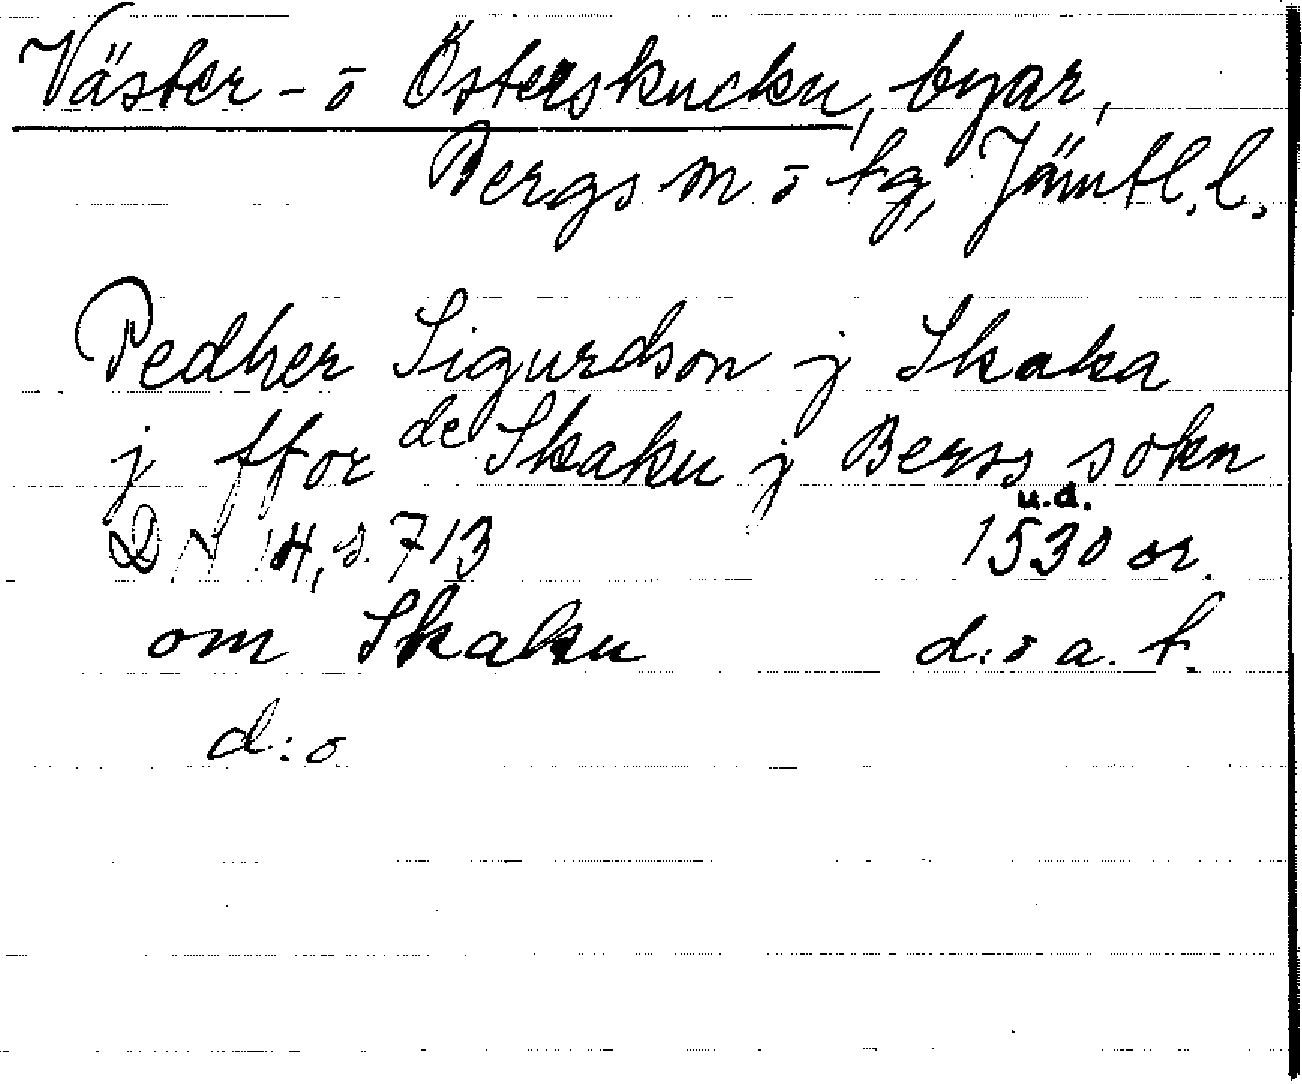 Väster- o Österskucku, byar,
Bergs sn o tg, Jämtl. l.
Pedher Sigurdson j Skaka
j ffor de Skaku j Berss sokn
u.d.
DN 14, s. 713 1530 or.
om Skaku d:o a. f.
d:o